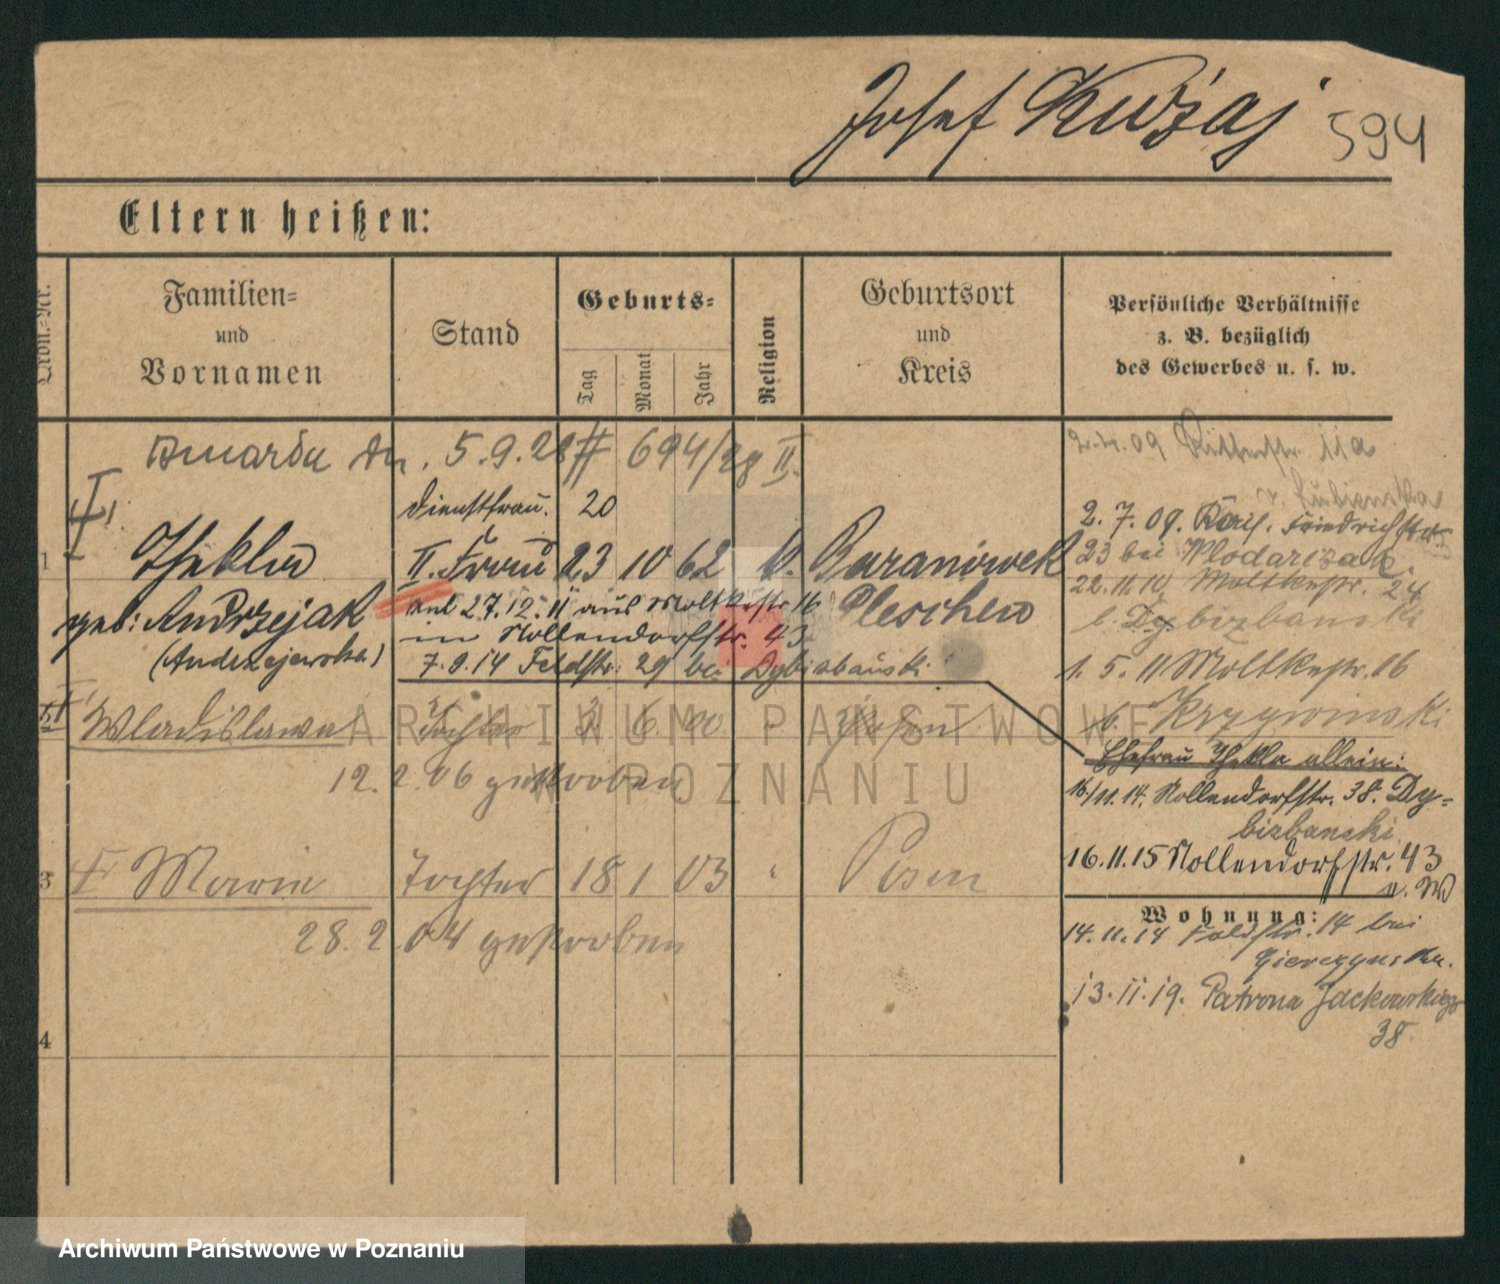 Josef Kużaj 594
Eltern heißen:
Ordn.-Nr.
Familien-
und
Vornamen
Stand
Geburts-
Tag
Monat
Jahr
Religion
Geburtsort
und
Kreis
Persönliche Verhältnisse
z. B. bezüglich
des Gewerbes u. s. w.
5.9.28 # 694/28 II.
1
Thekla
geb: Andrzejak
(Andrzejewska)
Dienstfrau. 20
II. Frau 23 10 62 k. Baranówek
Pleschen
auf 27.12.11 aus Moltkestr 16
in Nollendorfstr. 43
7.9.14 Feldstr. 29 bei Dybizbański
Wladislawa Tochter 3. 6. 00. Posen
12.2.06 gestorben
3 Marie Tochter 18 1 03 Posen
28.2.04 gestorben
4
09 Ritterstr. 11a
2.7.09. Kais. Friedrichstr.
23 bei Wlodarczak
22.11.10. Moltkestr. 24
b. Dybizbanski
1.5.11 Moltkestr. 16
b. Krzywinski
Ehefrau Thekla allein:
16/11.14. Nollendorfstr. 38. Dy-
bizbanski
16.11.15 Nollendorfstr. 43
Wohnung:
14.11.14 Feldstr. 14 bei
13.11.19. Patrona Jackowskiego
38.
ARCHIWUM PAŃSTWOWE
W POZNANIU
Archiwum Państwowe w Poznaniu